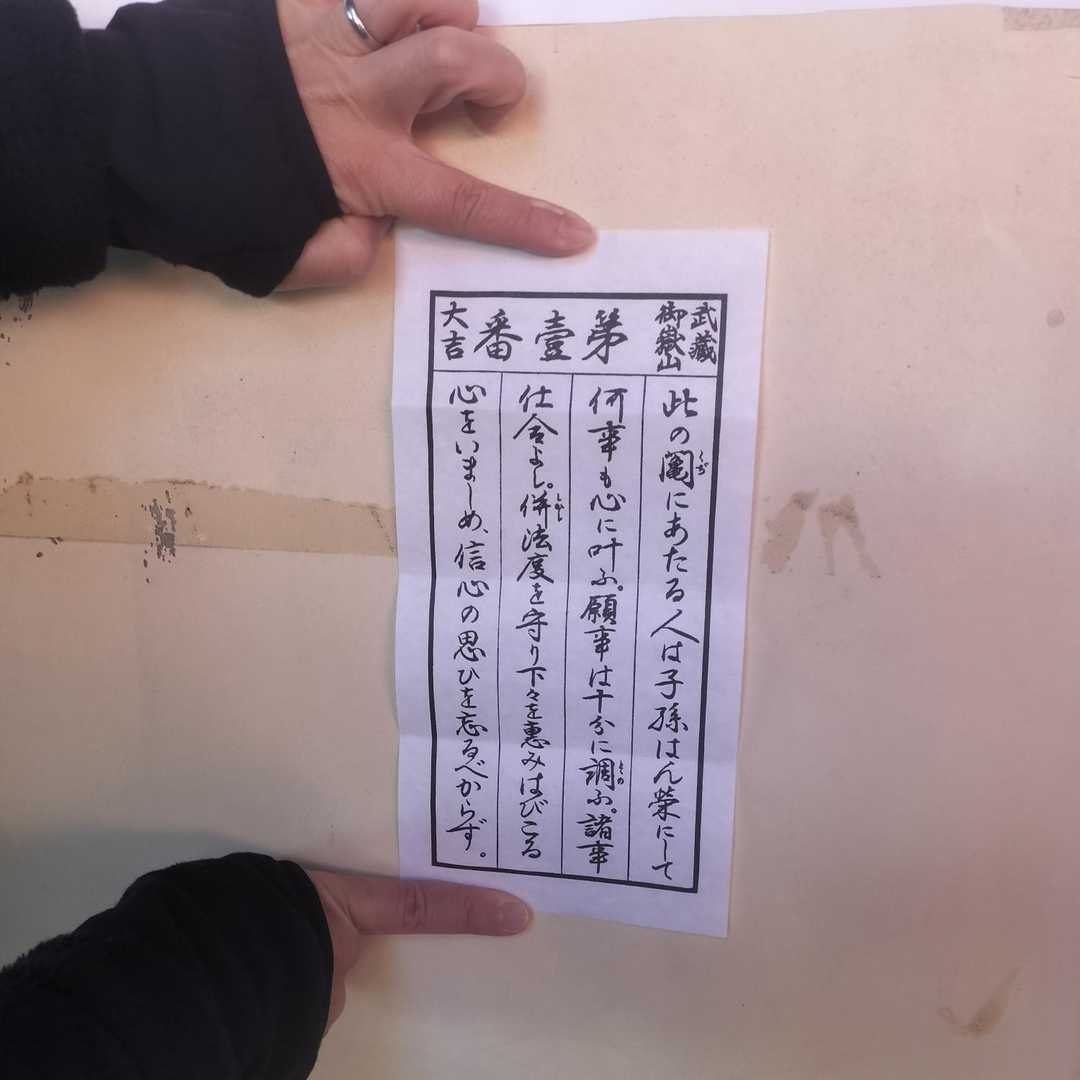 武蔵
御嶽山
第壹番
大吉
此の鬮にあたる人は子孫はん榮にして
くぢ
何事も心に叶ふ。願事は十分に調ふ。諸事
とゝの
仕合よし。併法度を守り下々を惠みはびこる
しかし
心をいましめ、信心の思ひを忘るべからず。